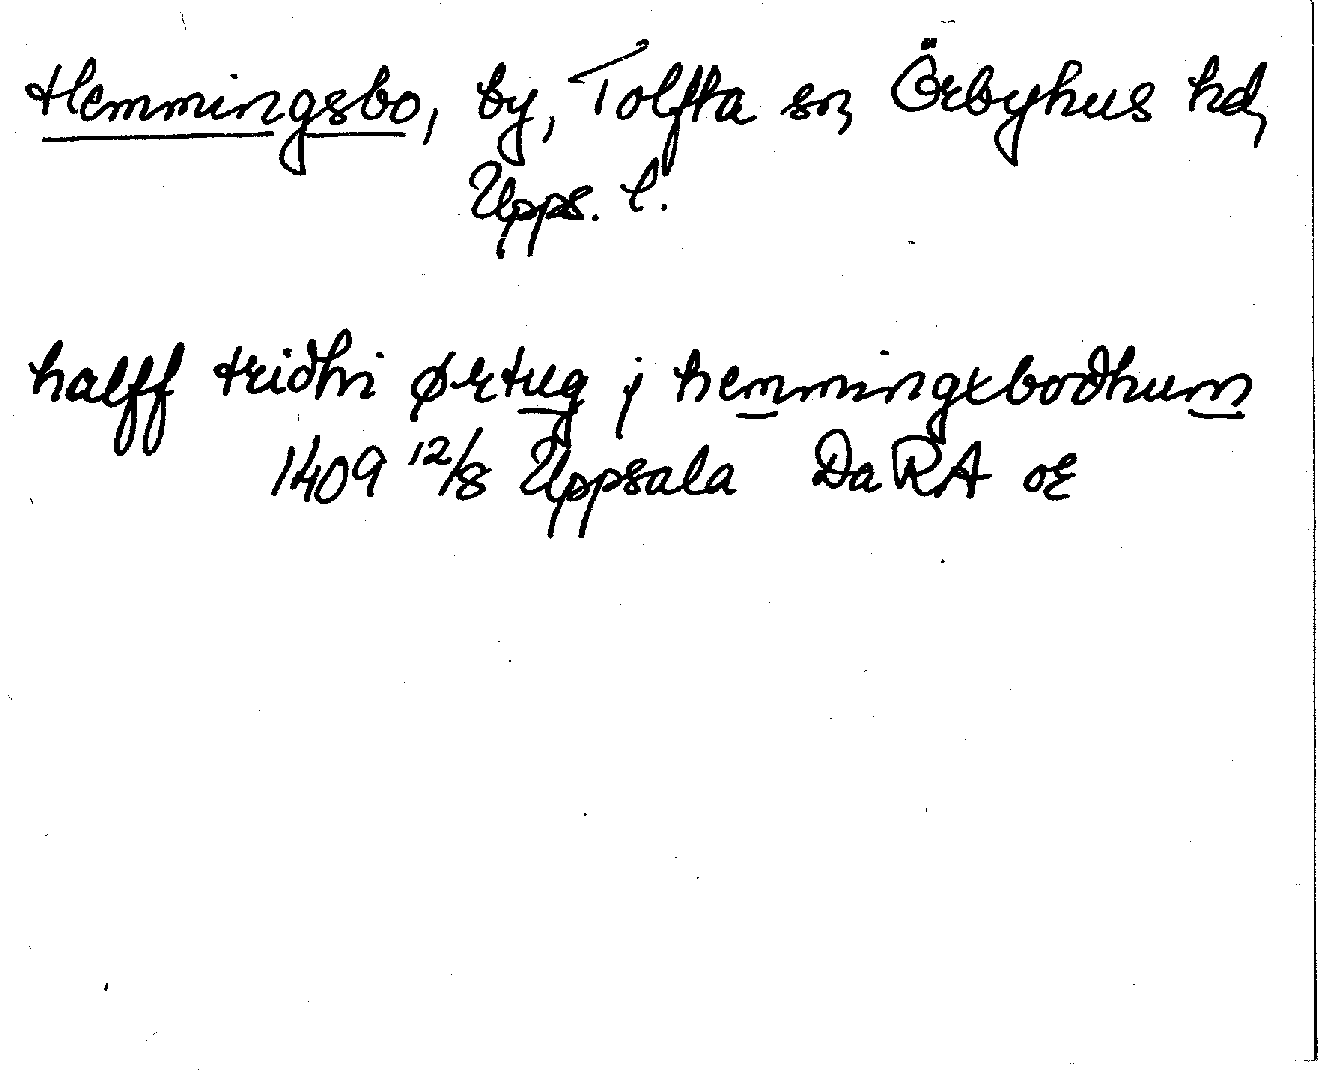 Hemmingsbo, by, Tolfta sn, Örbyhus hd,
Upps. l.
halff tridhi ørtug j hemmingxbodhum
1409 12/8 Uppsala DaRA or